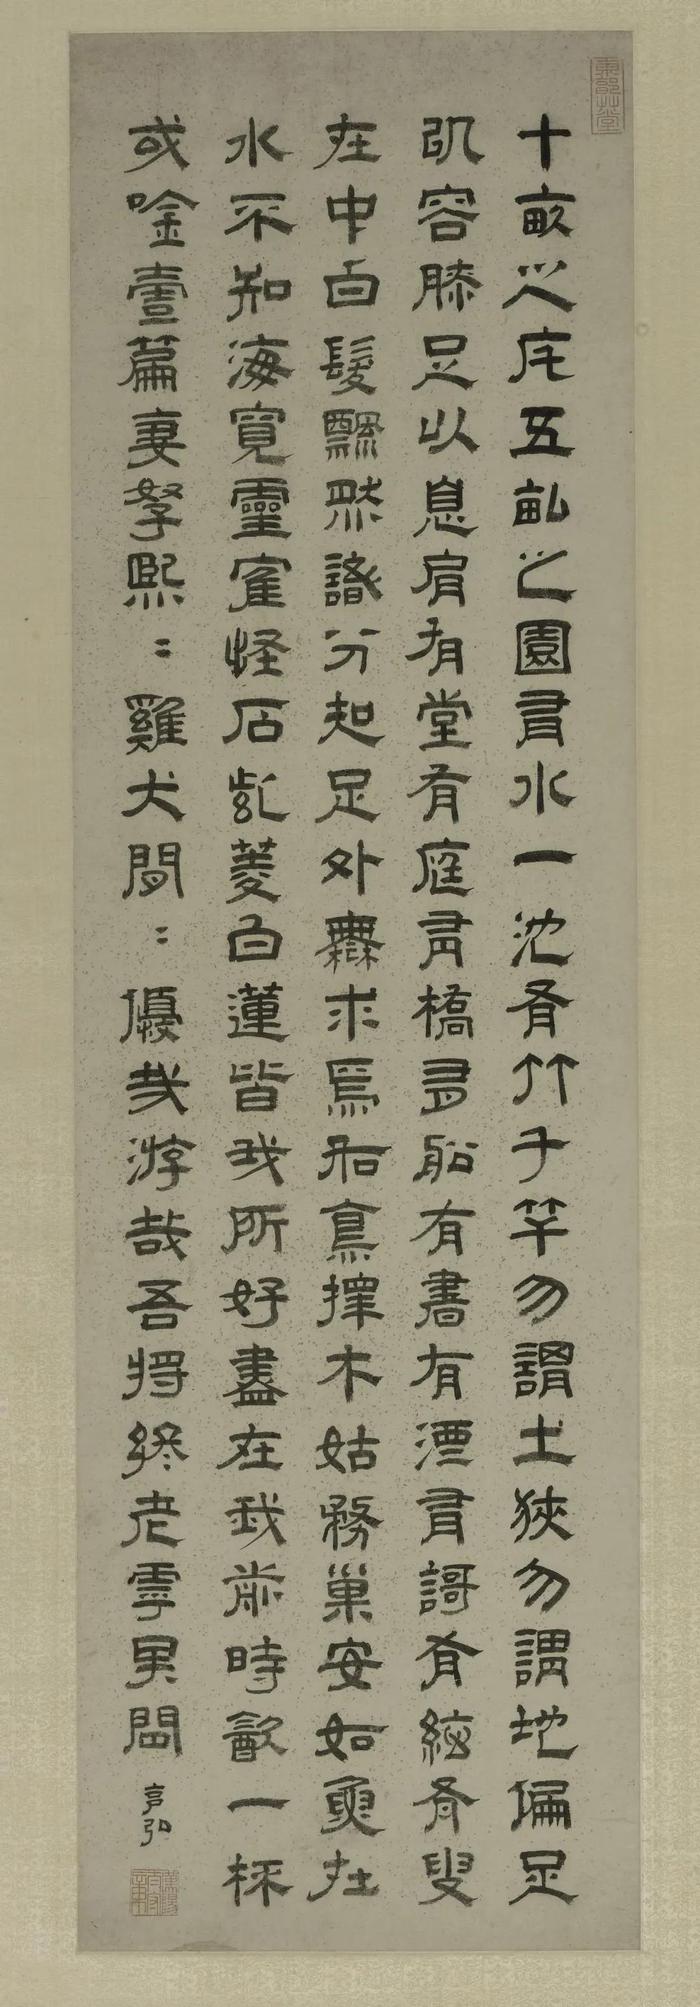 十畝之宅五畝之園有水一池有竹千竿勿謂土狹勿謂地偏足
以容膝足以息肩有堂有庭有橋有船有書有酒有謌有絃有叟
在中白髮飄然識分知足外無求焉如鳥擇木姑務巢安如魚在
水不知海寬靈寉怪石紫菱白蓮皆我所好盡在我前時飲一杯
或唫壹篇妻孥熙〻雞犬閒〻優哉游哉吾將終老乎其間